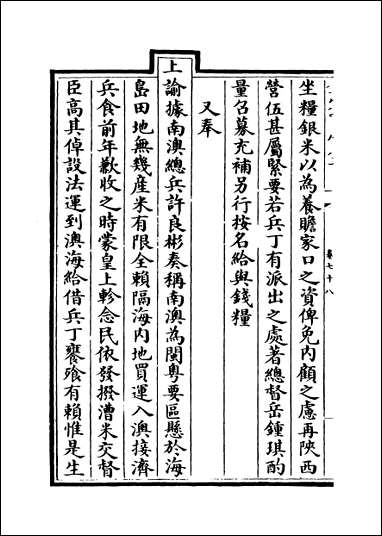 坐糧銀米以為養贍家口之資俾免内顧之慮再陝西
營伍甚屬緊要若兵丁有派出之處著總督岳鍾琪酌
量召募充補另行按名給與錢糧
又奉
上諭據南澳總兵許良彬奏稱南澳為閩粤要區懸於海
島田地無幾産米有限全賴隔海内地買運入澳接濟
兵食前年歉收之時蒙皇上軫念民依發撥漕米交督
臣高其倬設法運到澳海給借兵丁饔飱有賴惟是生
卷七十八